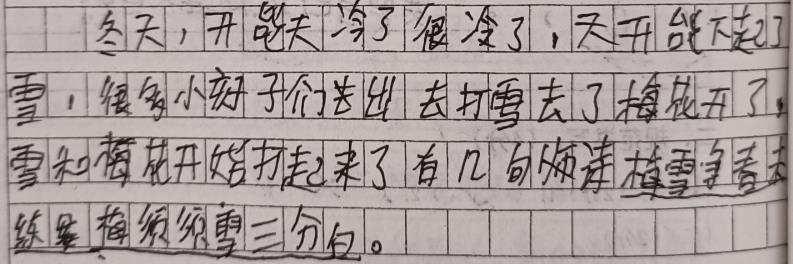 冬天，开始天冷了很冷了，天开始下起了
雪，很多小孩子们送出去打雪去了梅花开了，
雪和梅花开始打起来了有几句师读梅雪争春未
练是梅须须雪三分白。